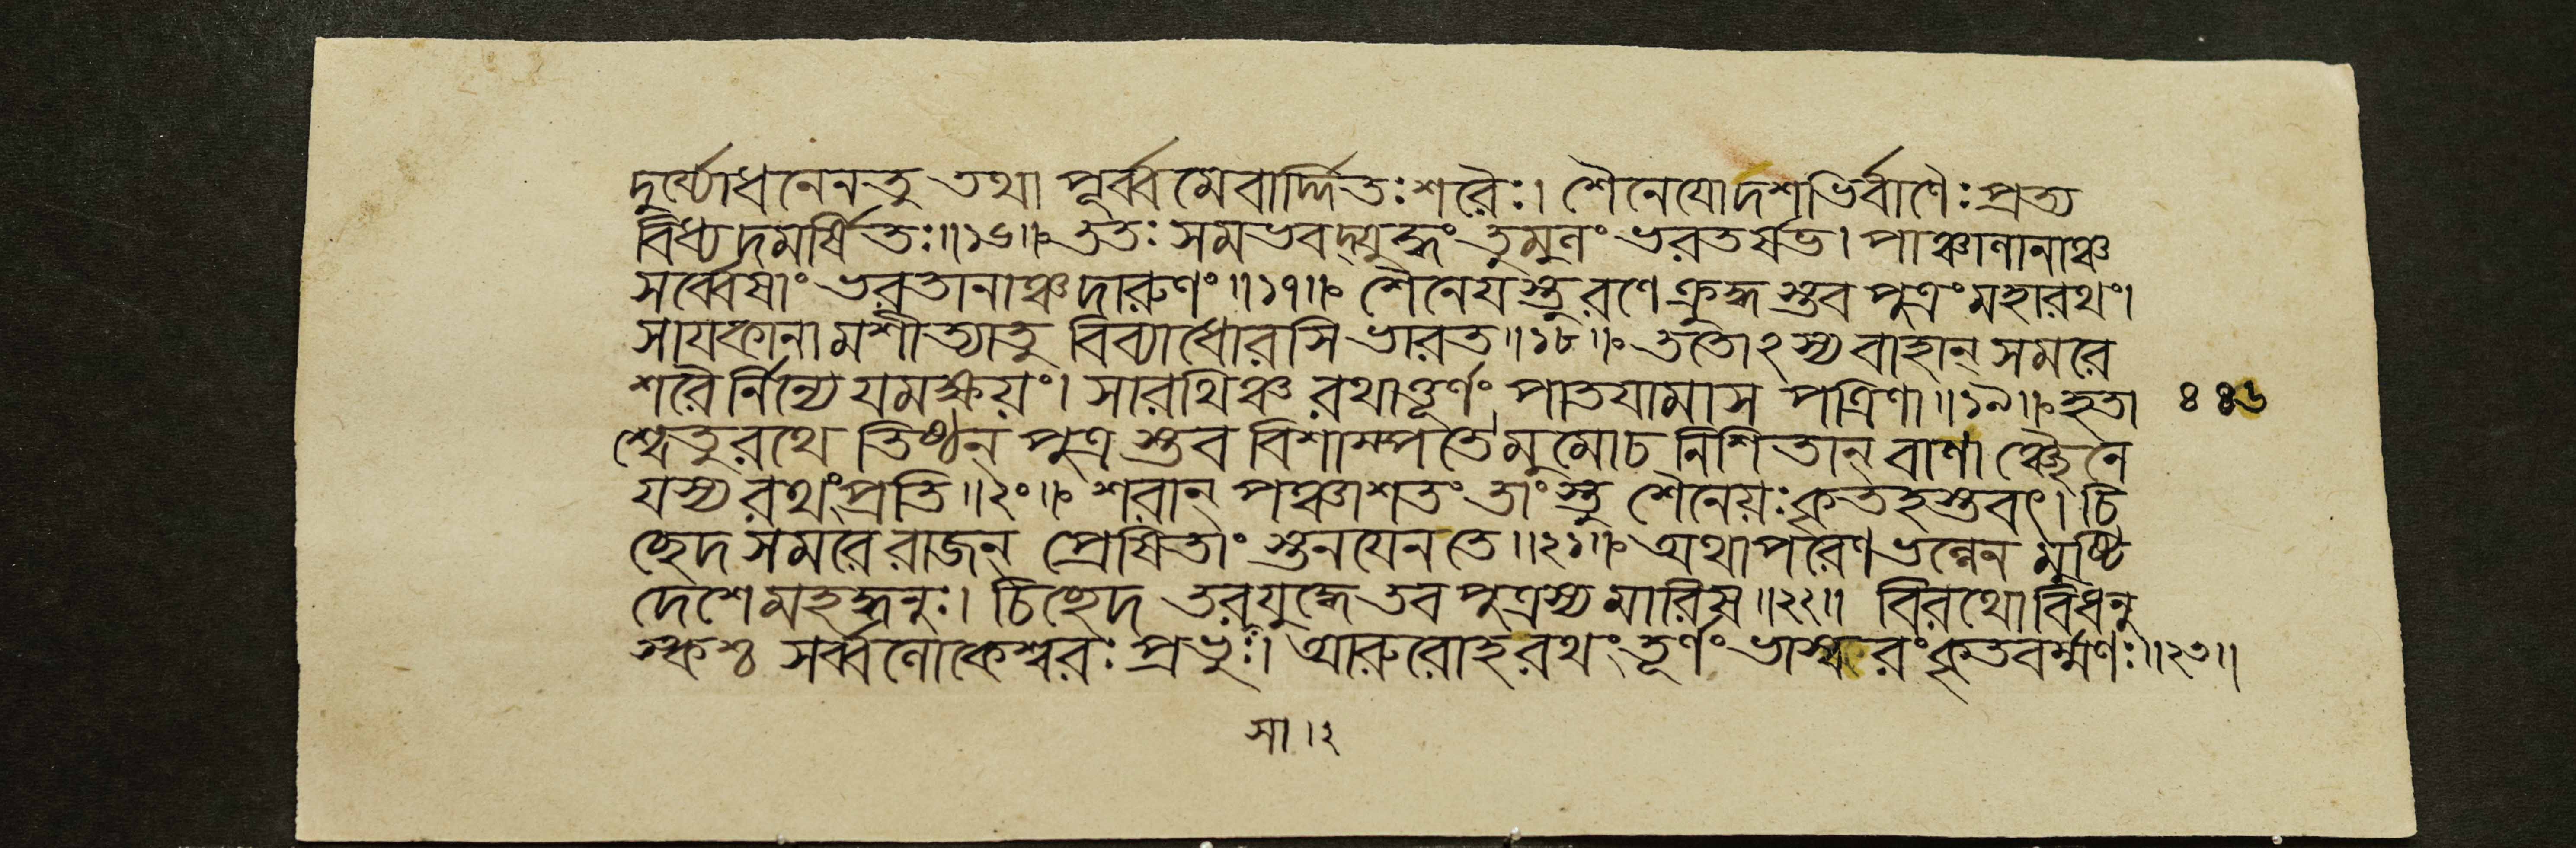 দুর্য্যোধনেন তু তথা পূর্ব্বমেবার্দ্দিতঃ শরৈঃ। শৈনেয়োদশভির্বাণৈঃ প্রত্য
বিধ্যদমর্ষিতঃ॥১৬॥ ততঃ সমভবদ্যুদ্ধং তুমুলং ভরতর্ষভ। পাঞ্চালানাঞ্চ
সর্ব্বেষাং ভরতানাঞ্চ দারুণং॥১৭॥ শৈনেয়স্তু রণে ক্রুদ্ধস্তব পুত্রং মহারথং।
সায়কানামশীত্যাতু বিব্যাধোরসি ভারত॥১৮॥ ততোঽস্য বাহান্ সমরে
শরৈর্নিন্যে যমক্ষয়ং। সারথিঞ্চ রথাত্তূর্ণং পাতয়ামাস পত্রিণা॥১৯॥ হতা
শ্বে তু রথে তিষ্ঠন্ পুত্রস্তব বিশাম্পতে মুমোচ নিশিতান্ বাণাঞ্ছৈনে
যস্য রথং প্রতি॥২০॥ শরান্ পঞ্চাশতং তাংস্তু শৈনেয়ঃ কৃতহস্তবৎ। চি
চ্ছেদ সমরে রাজন্ প্রেষিতাং স্তনয়েন তে॥২১॥ অথাপরেণ ভল্লেন মুষ্টি
দেশে মহদ্ধনুঃ। চিচ্ছেদ তরযুদ্ধে তব পুত্রস্য মারিষ॥২২॥ বিরথো বিধনু
স্কশ্চ সর্ব্বলোকেশ্বরঃ প্রভুঃ। আরুরোহ রথং তূর্ণং ভাস্করং কৃতবর্ম্মণঃ॥২৩॥
৪৪৬
সা।২